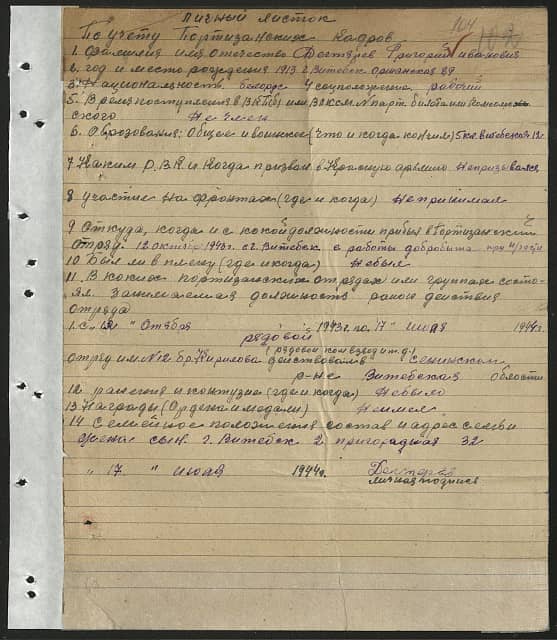 Личный листок
По учету Партизанских Кадров
104
1. Фамилия имя отечество Дехтярев Григорий иванович
2. год и место рождения 1913 г. Витебск Оршанская 89
3. Национальность белорус 4 соцположение рабочий
5. Время поступления в ВКПбы или ВЛКСМ N парт. билета или комсомоль-
ского Не член
6. Оброзования: Общее и военное (Что и когда кончил) 5 кл. Витебская 12
7 Каким Р.В.К. и Когда призван в Красную армию Непризывался
8 участие на фронтах (где и когда) Непринимал
9 Откуда, когда и с какой должности прибыл в Партизанский
Отряд 12 октября 1943г. с г. Витебск с работы
10 Был ли в плену (где и когда) Небыл
11. В каких партизанских отрядах или группах состо-
ял. Занимаемая должность район действия
отряда
1. с „12 " Отября 1943г. по „17 " июля 1944г.
рядовой
(рядовой ком взвод и т.д.)
отряд им. N12 бр. Кирилова действовал в Сенинском
р-не Витебская области
12 ранения и контузие (где и когда) Небыло
13 Награды (Ордена и медали) Неимел
14 Семейное положения состав и адрес семьи
жена сын. г. Витебск 2 пригородная 32
„ 17. " июля 1944г. Дехтерев
личная подпись